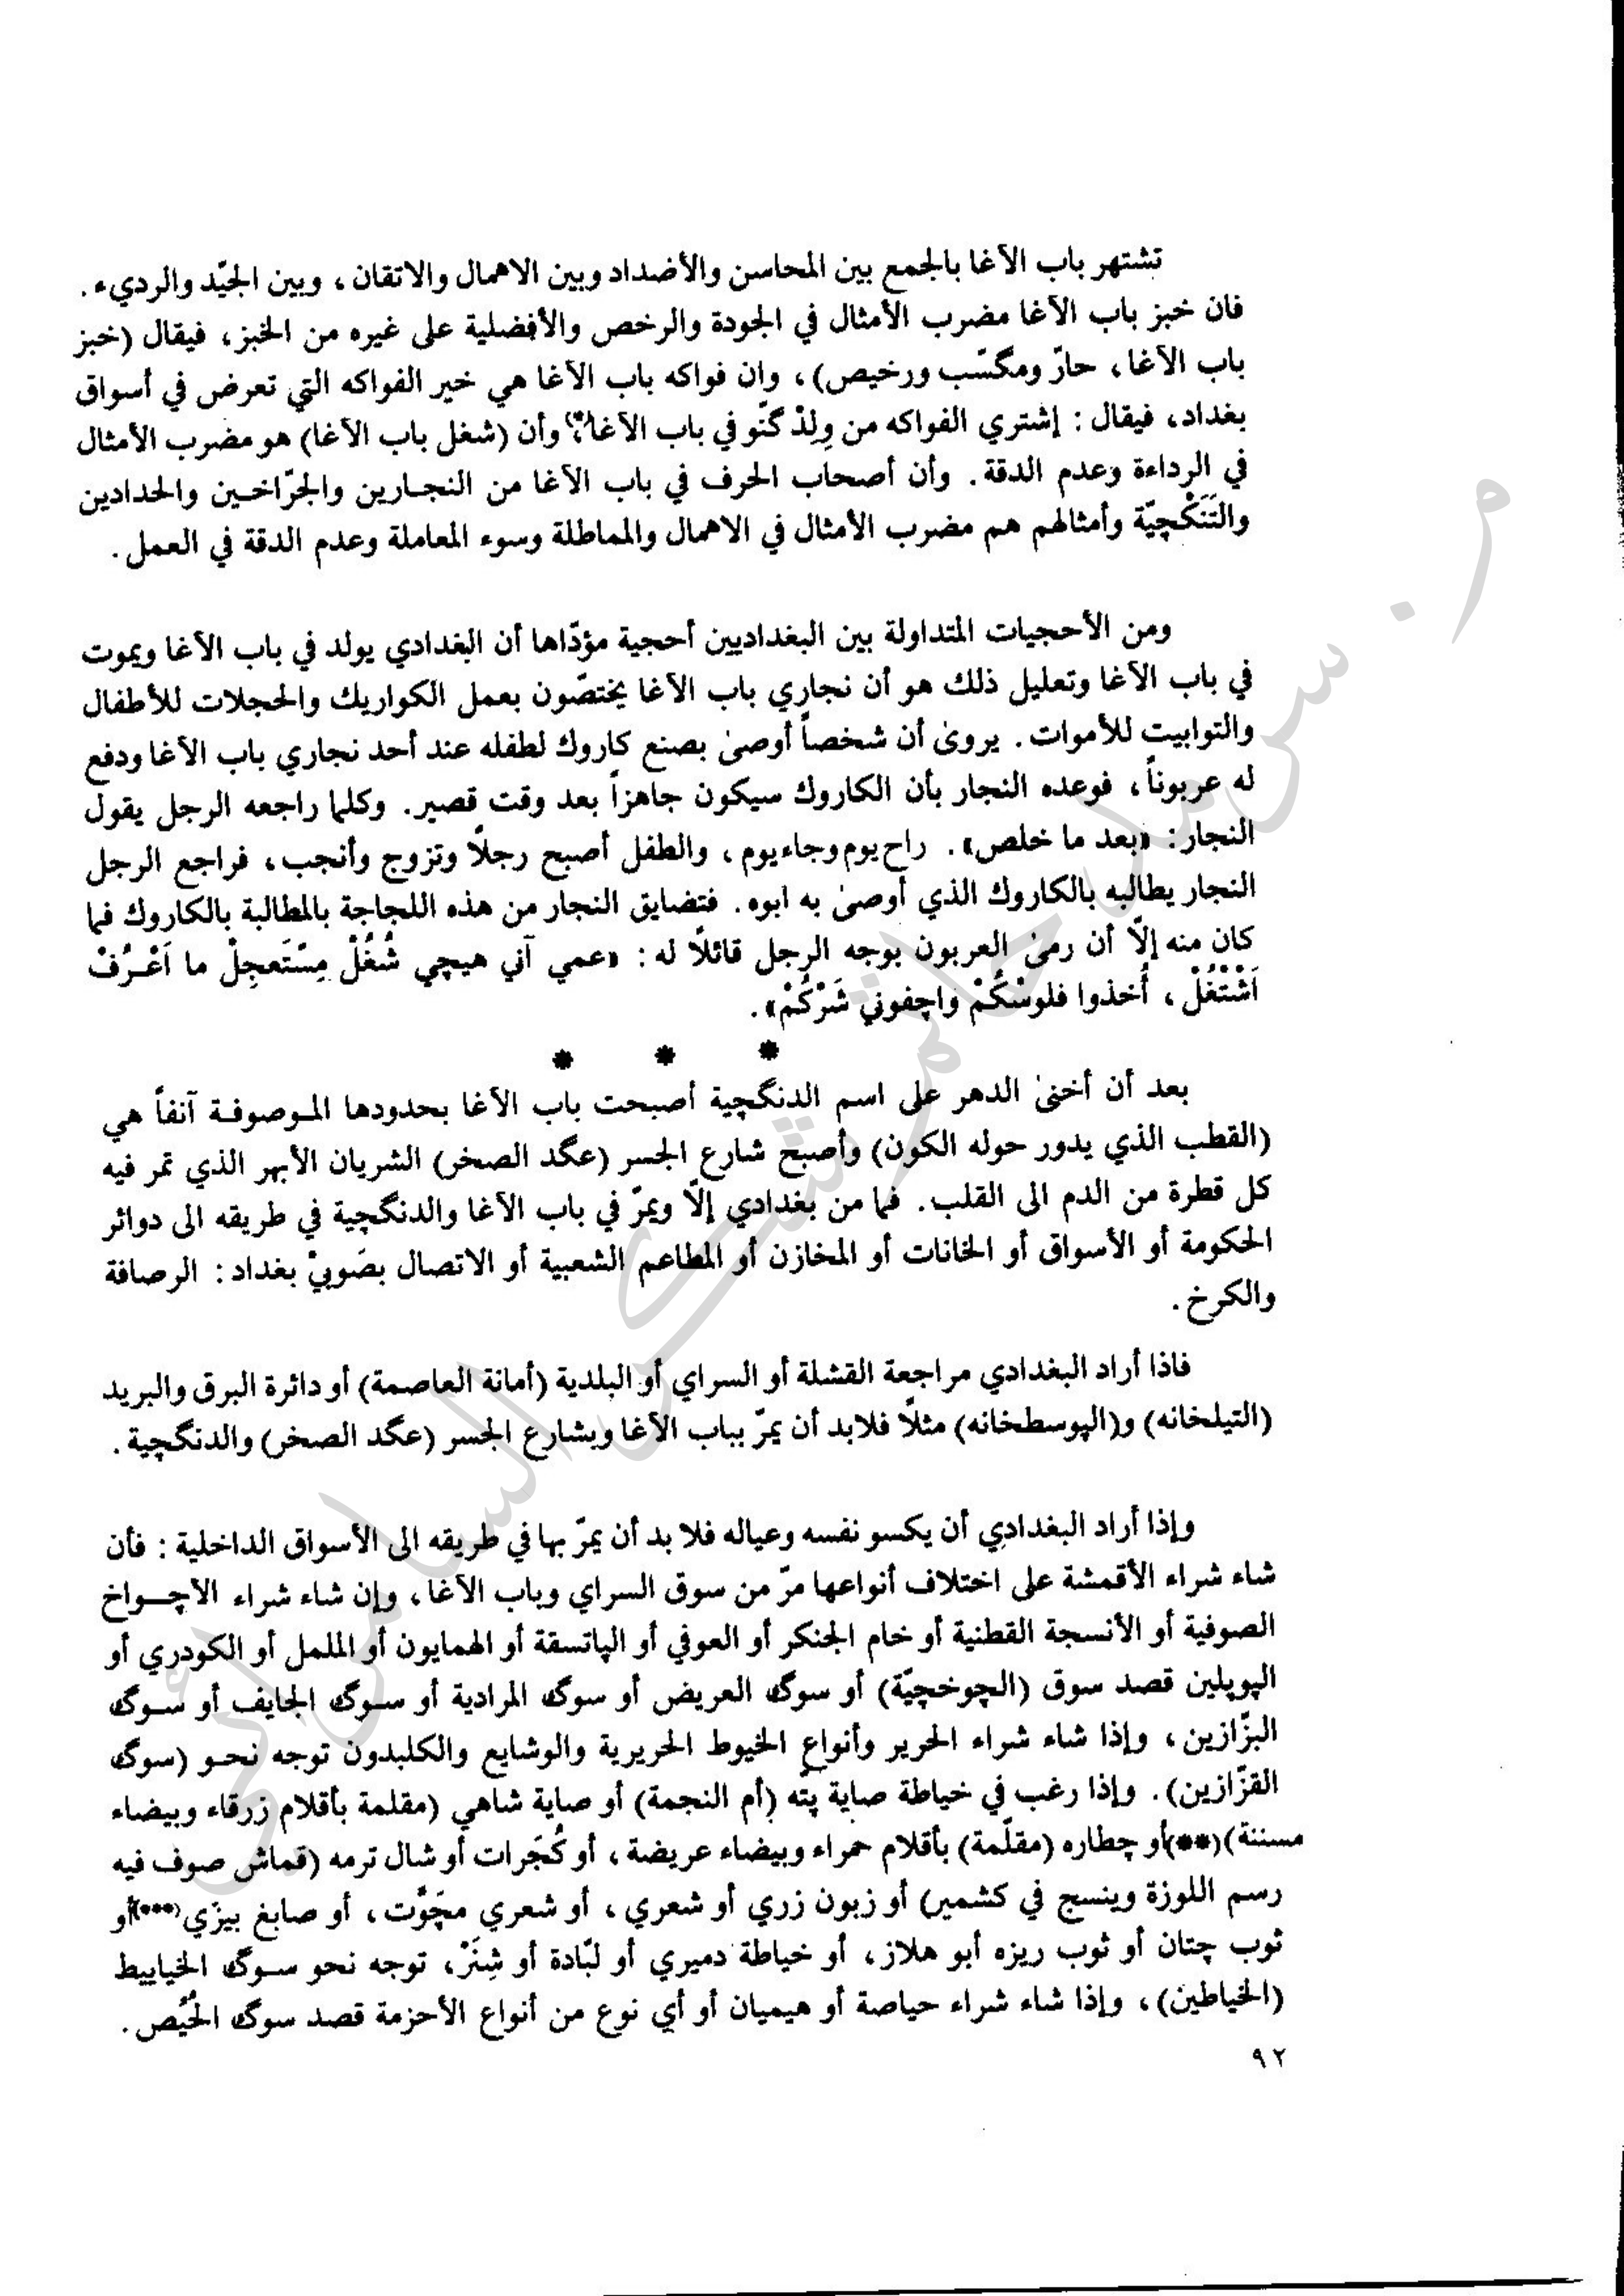 تشتهر باب الآغا بالجمع بين المحاسن والأضداد وبين الاهمال والاتقان، وبين الجيّد والرديء.
فان خبز باب الآغا مضرب الأمثال في الجودة والرخص والأفضلية على غيره من الخبز، فيقال (خبز
باب الآغا، حارّ ومگسّب ورخيص)، وان فواكه باب الآغا هي خير الفواكه التي تعرض في أسواق
بغداد، فيقال: إشتري الفواكه من وِلِدْ گنّو في باب الآغا وأن (شغل باب الآغا) هو مضرب الأمثال
في الرداءة وعدم الدقة. وأن أصحاب الحرف في باب الآغا من النجارين والجرّاخين والحدادين
والتَنَكْچيّة وأمثالهم هم مضرب الأمثال في الاهمال والمماطلة وسوء المعاملة وعدم الدقة في العمل.
ومن الأحجيات المتداولة بين البغداديين أحجية مؤدّاها أن البغدادي يولد في باب الآغا ويموت
في باب الآغا وتعليل ذلك هو أن نجاري باب الآغا يختصّون بعمل الكواريك والحجلات للأطفال
والتوابيت للأموات. يروىٰ أن شخصاً أوصىٰ بصنع كاروك لطفله عند أحد نجاري باب الآغا ودفع
له عربوناً، فوعده النجار بأن الكاروك سيكون جاهزاً بعد وقت قصير. وكلما راجعه الرجل يقول
النجار: «بعد ما خلص». راح يوم وجاء يوم، والطفل أصبح رجلاً وتزوج وأنجب، فراجع الرجل
النجار يطالبه بالكاروك الذي أوصىٰ به ابوه. فتضايق النجار من هذه اللجاجة بالمطالبة بالكاروك فما
كان منه إلّا أن رمىٰ العربون بوجه الرجل قائلاً له: «عمي آني هيچي شُغُلْ مِسْتَعجِلْ ما اَعْرُفْ
اَشْتْغُلْ، أُخذوا فلوسْكُمْ واچفوني شَرْكُمْ».
* * *
بعد أن أخنىٰ الدهر على اسم الدنگچية أصبحت باب الآغا بحدودها الموصوفة آنفاً هي
(القطب الذي يدور حوله الكون) وأصبح شارع الجسر (عگد الصخر) الشريان الأبهر الذي تمر فيه
كل قطرة من الدم الى القلب. فما من بغدادي إلّا ويمرّ في باب الآغا والدنگچية في طريقه الى دوائر
الحكومة أو الأسواق أو الخانات أو المخازن أو المطاعم الشعبية أو الاتصال بصَوبيْ بغداد: الرصافة
والكرخ.
فاذا أراد البغدادي مراجعة القشلة أو السراي أو البلدية (أمانة العاصمة) أو دائرة البرق والبريد
(التيلخانه) و(الپوسطخانه) مثلاً فلابد أن يمرّ بباب الآغا وبشارع الجسر (عگد الصخر) والدنگچية.
وإذا أراد البغدادي أن يكسو نفسه وعياله فلا بد أن يمرّ بها في طريقه الى الأسواق الداخلية: فأن
شاء شراء الأقمشة على اختلاف أنواعها مرّ من سوق السراي وباب الآغا، وإن شاء شراء الاچواخ
الصوفية أو الأنسجة القطنية أو خام الجنكر أو العوفي أو الپاتسقة أو الهمايون أو الململ أو الكودري أو
الپوپلين قصد سوق (الچوخچيّة) أو سوگ العريض أو سوگ المرادية أو سوگ الجايف أو سوگ
البزّازين، وإذا شاء شراء الحرير وأنواع الخيوط الحريرية والوشايع والكلبدون توجه نحو (سوگ
القزّازين). وإذا رغب في خياطة صاية پته (أم النجمة) أو صاية شاهي (مقلمة بأقلام زرقاء وبيضاء
مسننة)(**)أو چطاره (مقلّمة) بأقلام حمراء وبيضاء عريضة، أو كُجَرات أو شال ترمه (قماش صوف فيه
رسم اللوزة وينسج في كشمير) أو زبون زري أو شعري، أو شعري مچَوَّت، أو صابغ بيزي(***)أو
ثوب چتان أو ثوب ريزه أبو هلاز، أو خياطة دميري أو لبّادة أو شِنَرْ، توجه نحو سوگ الخياييط
(الخياطين)، وإذا شاء شراء حياصة أو هيميان أو أي نوع من أنواع الأحزمة قصد سوگ الحُيَّص.
٩٢